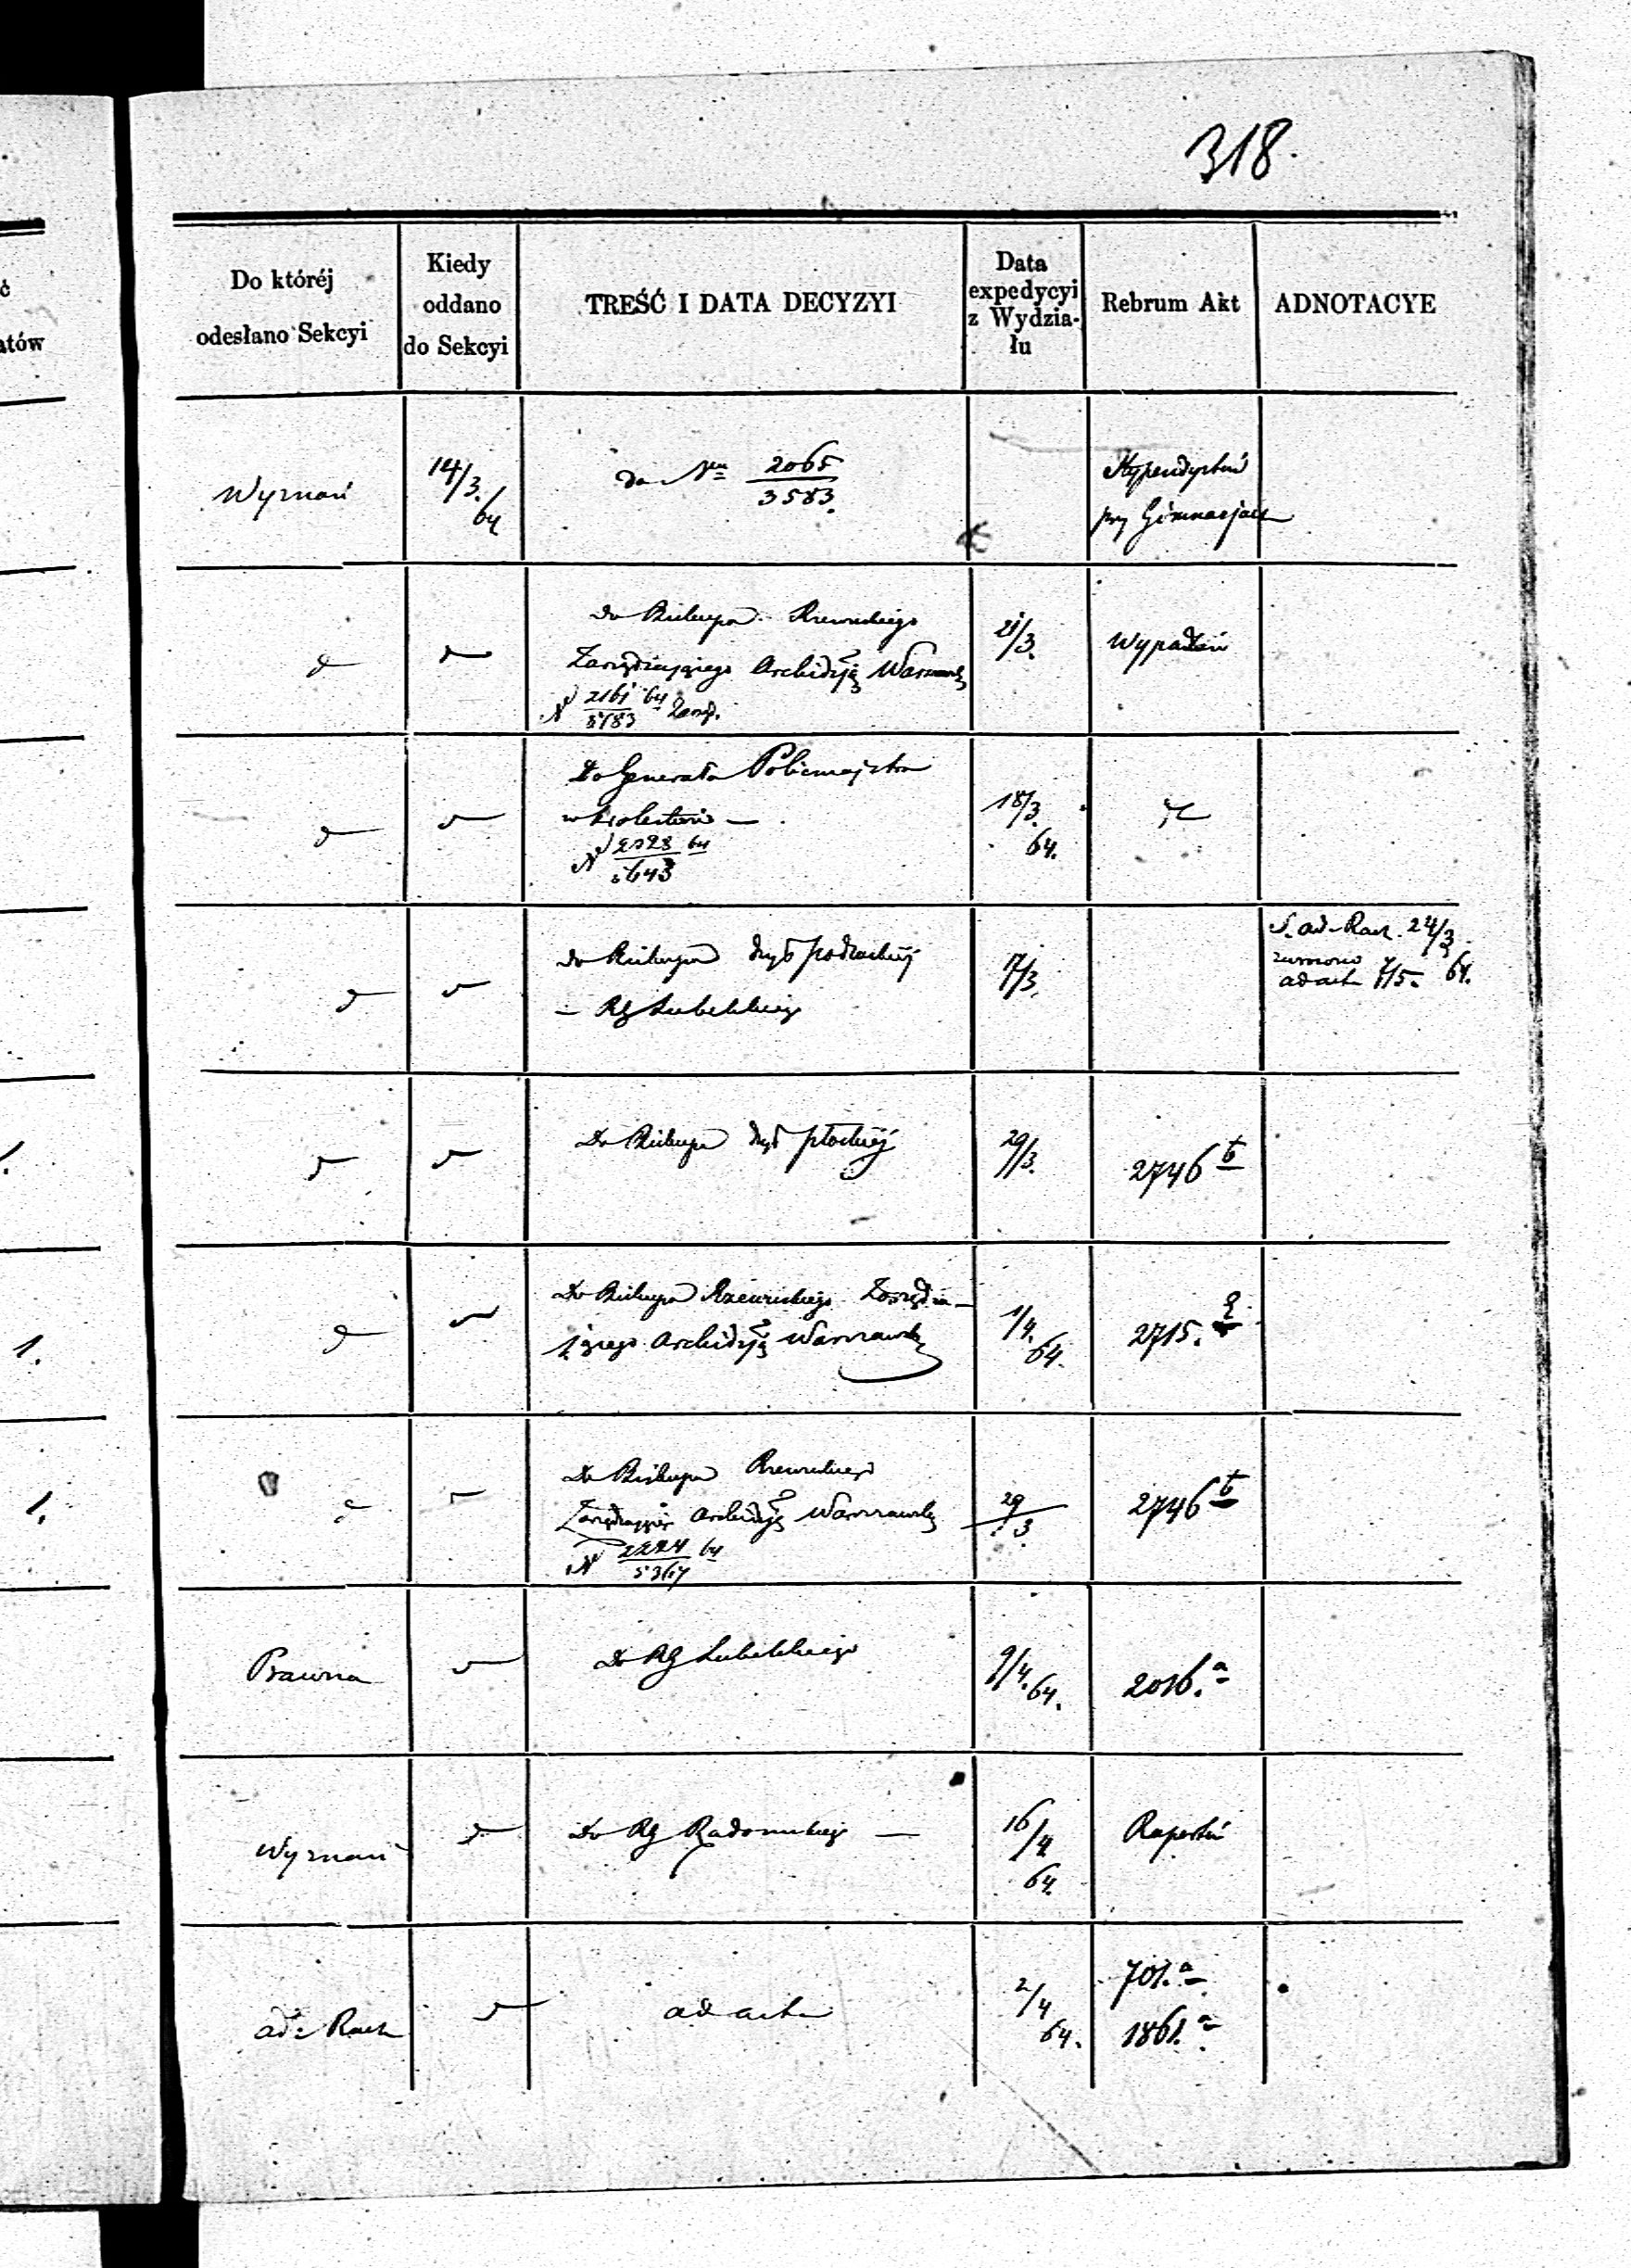 318.
Do któréj
odesłano Sekcyi
Kiedy
oddano
do Sekcyi
TREŚĆ I DATA DECYZYI
Data
expedycyi
z Wydzia-
łu
Rebrum Akt
ADNOTACYE
ć
atów
Wyznań
14/3.
64
do Nru 2065
3583.
Stypendystów
przy Gimnazjach
Do Biskupa Rzewuskiego
Zarządzającego Archidyą Warszawsk
N 2161 64
5183
21/3.
Wypadków
Do Generała Policmajstra
w Królestwie —
N 64
5643
18/3.
64.
Do Biskupa Dyec Podlaskiéj
— RG Lubelskiego
17/3.
S. ad. Rach. 24/3
64.
ad acta 7/5.
Do Biskupa Dyec Płockiéj
29/3.
2746 b
1.
Do Biskupa Rzewuskiego Zarządza-
jącego Archidyą Warszawsk
1/4.
64.
2715.
1.
Do Biskupa Rzewuskiego
Archidyą Warszawsk
N 2224 64
5367
29
3
2746 b
Prawna
Do RG Lubelskiego
9/4. 64.
2016. a
Wyznań
Do RG Radomskiego —
16/4
64.
Raportów
ad: Rach
ad acta
2/4
64.
701. a
1861. a